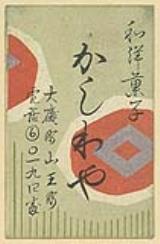 和洋菓子
かしわや
大森山王
電話⑥〇一九四番